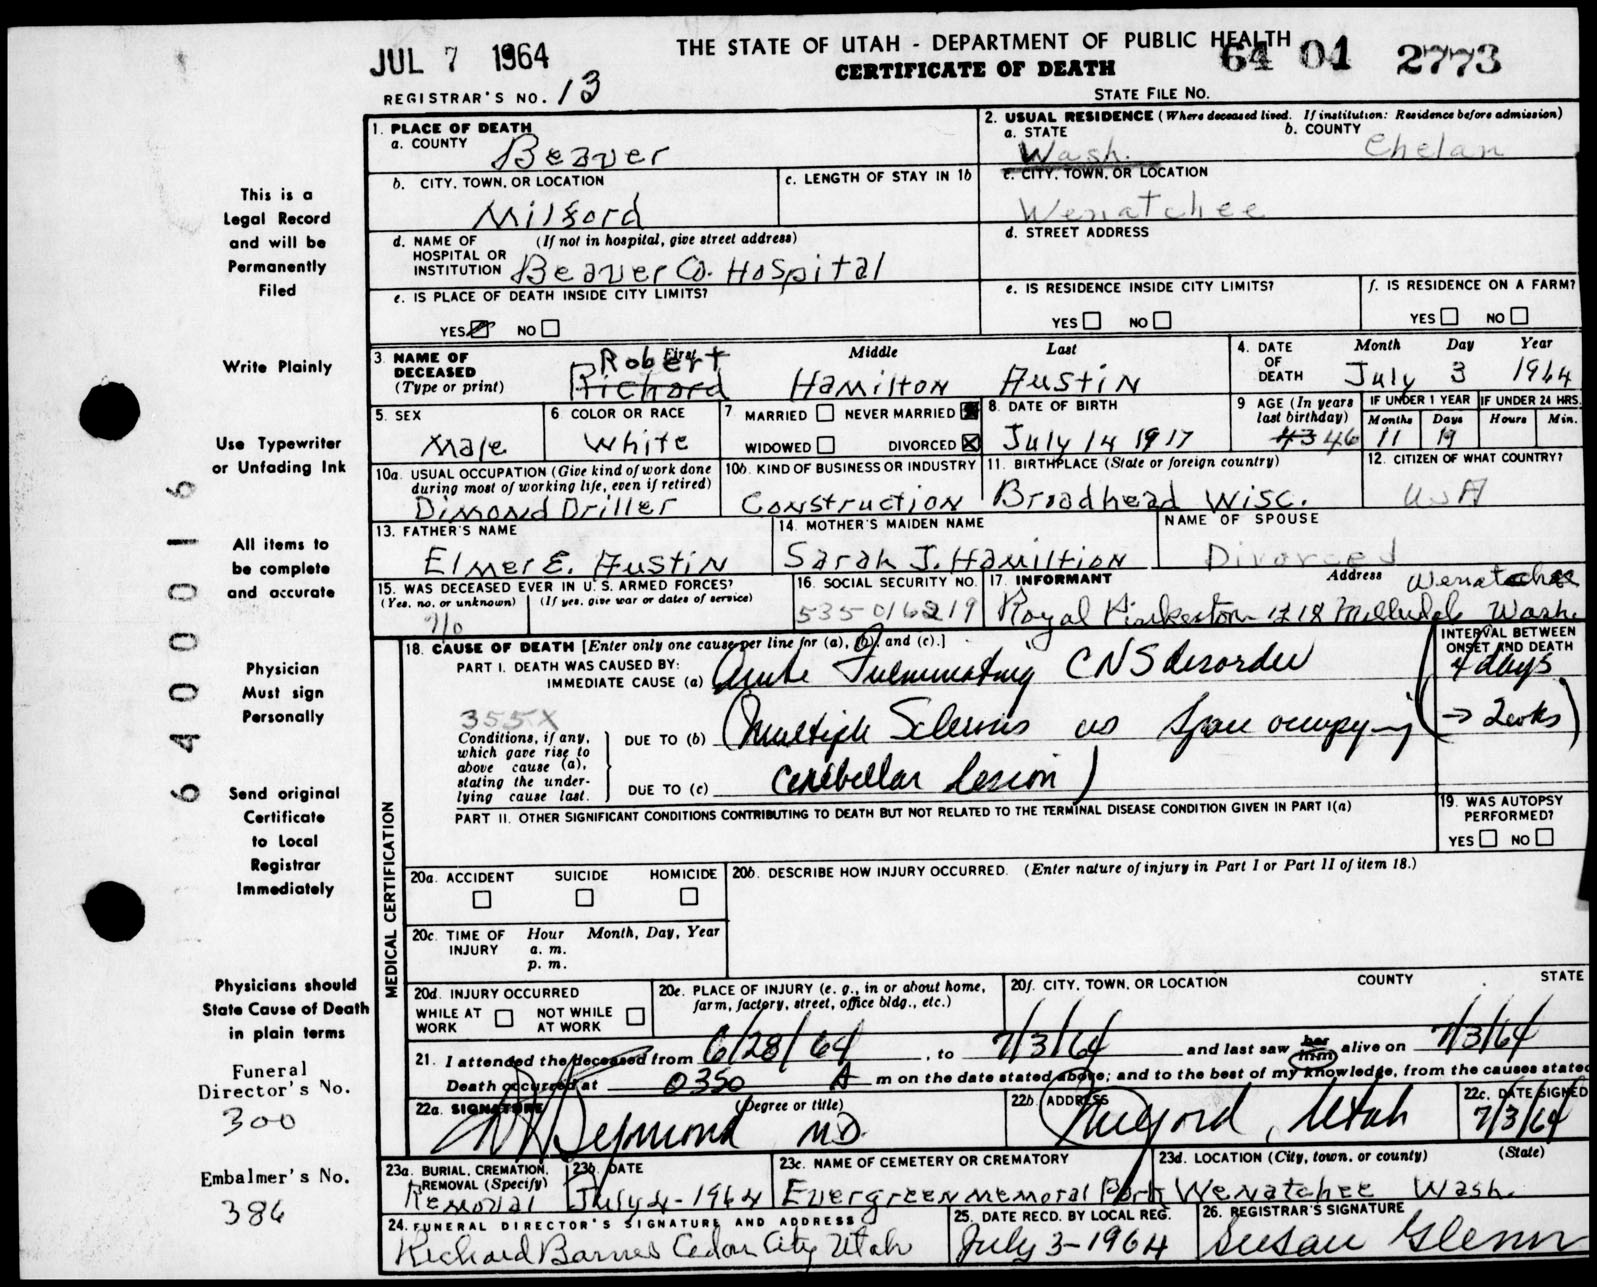 JUL 7 1964
THE STATE OF UTAH - DEPARTMENT OF PUBLIC HEALTH
64 04 2773
CERTIFICATE OF DEATH
REGISTRAR'S NO. 13
STATE FILE NO.
This is a
Legal Record
and will be
Permanently
Filed
Write Plainly
Use Typewriter
or Unfading Ink
All items to
be complete
and accurate
Physician
Must sign
Personally
Send original
Certificate
to Local
Registrar
Immediately
Physicians should
State Cause of Death
in plain terms
Funeral
Director's No.
300
Embalmer's No.
386
6400016
1. PLACE OF DEATH
a. COUNTY Beaver
2. USUAL RESIDENCE (Where deceased lived. If institution: Residence before admission)
a. STATE Wash.
b. COUNTY Chelan
b. CITY, TOWN, OR LOCATION
Milford
c. LENGTH OF STAY IN 1b
c. CITY, TOWN, OR LOCATION
Wenatchee
d. NAME OF HOSPITAL OR INSTITUTION (If not in hospital, give street address)
Beaver Co. Hospital
d. STREET ADDRESS
e. IS PLACE OF DEATH INSIDE CITY LIMITS?
YES NO
e. IS RESIDENCE INSIDE CITY LIMITS?
YES NO
f. IS RESIDENCE ON A FARM?
YES NO
3. NAME OF DECEASED (Type or print)
First Middle Last
Robert
Richard Hamilton Austin
4. DATE OF DEATH
Month Day Year
July 3 1964
5. SEX
Male
6. COLOR OR RACE
White
7. MARRIED NEVER MARRIED
WIDOWED DIVORCED
8. DATE OF BIRTH
July 14 1917
9. AGE (In years last birthday)
43 46
IF UNDER 1 YEAR
Months Days
11 19
IF UNDER 24 HRS.
Hours Min.
10a. USUAL OCCUPATION (Give kind of work done during most of working life, even if retired)
Dimond Driller
10b. KIND OF BUSINESS OR INDUSTRY
Construction
11. BIRTHPLACE (State or foreign country)
Broadhead Wisc.
12. CITIZEN OF WHAT COUNTRY?
USA
13. FATHER'S NAME
Elmer E. Austin
14. MOTHER'S MAIDEN NAME
Sarah J. Hamiltion
NAME OF SPOUSE
Divorced
15. WAS DECEASED EVER IN U.S. ARMED FORCES?
(Yes, no, or unknown) (If yes, give war or dates of service)
No
16. SOCIAL SECURITY NO.
535 016219
17. INFORMANT Address
Royal Pinkerton 1218 Wenatchee Wash.
18. CAUSE OF DEATH [Enter only one cause per line for (a), (b), and (c).]
PART I. DEATH WAS CAUSED BY:
IMMEDIATE CAUSE (a) Acute Fulminating CNS disorder
INTERVAL BETWEEN ONSET AND DEATH
4 days
355X
Conditions, if any, which gave rise to above cause (a), stating the underlying cause last.
DUE TO (b) (Multiple Sclerosis vs Space occupying
→ 2 wks)
DUE TO (c) cerebellar lesion)
PART II. OTHER SIGNIFICANT CONDITIONS CONTRIBUTING TO DEATH BUT NOT RELATED TO THE TERMINAL DISEASE CONDITION GIVEN IN PART I(a)
19. WAS AUTOPSY PERFORMED?
YES NO
MEDICAL CERTIFICATION
20a. ACCIDENT SUICIDE HOMICIDE
20b. DESCRIBE HOW INJURY OCCURRED. (Enter nature of injury in Part I or Part II of item 18.)
20c. TIME OF INJURY
Hour Month, Day, Year
a. m.
p. m.
20d. INJURY OCCURRED
WHILE AT WORK NOT WHILE AT WORK
20e. PLACE OF INJURY (e. g., in or about home, farm, factory, street, office bldg., etc.)
20f. CITY, TOWN, OR LOCATION COUNTY STATE
21. I attended the deceased from 6/28/64, to 7/3/64 and last saw her him alive on 7/3/64
Death occurred at 0350 A m on the date stated above; and to the best of my knowledge, from the causes stated
22a. SIGNATURE (Degree or title)
Symond M.D.
22b. ADDRESS
Milford, Utah
22c. DATE SIGNED
7/3/64
23a. BURIAL, CREMATION, REMOVAL (Specify)
Removal
23b. DATE
July 4-1964
23c. NAME OF CEMETERY OR CREMATORY
Evergreen Memoral Park
23d. LOCATION (City, town, or county) (State)
Wenatchee Wash.
24. FUNERAL DIRECTOR'S SIGNATURE AND ADDRESS
Richard Barnes Cedar City Utah
25. DATE RECD. BY LOCAL REG.
July 3-1964
26. REGISTRAR'S SIGNATURE
Susan Glenn